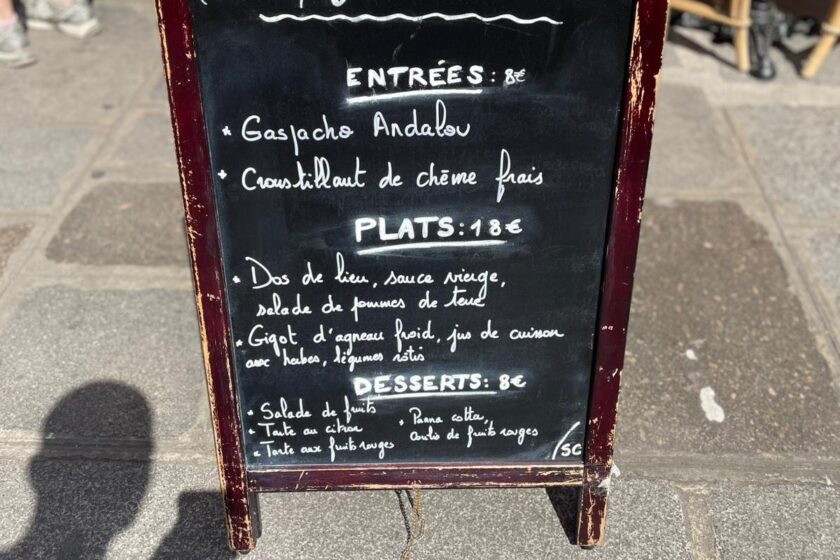 ENTRÉES : 8€
* Gaspacho Andalou
* Croustillant de chème frais
PLATS : 18€
* Dos de lieu, sauce vierge,
salade de pommes de terre
* Gigot d'agneau froid, jus de cuisson
aux herbes, légumes rôtis
DESSERTS : 8€
* Salade de fruits
* Tarte au citron
* Tarte aux fruits rouges
* Panna cotta,
coulis de fruits rouges
/SC